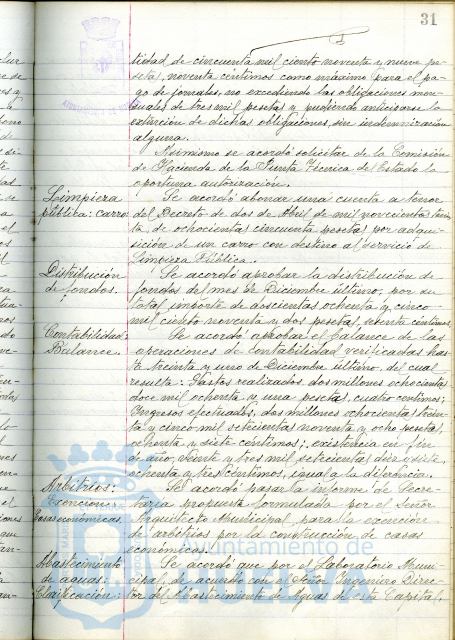 31
tidad de cincuenta mil ciento noventa y nueve pe-
setas, noventa céntimos como máximo para el pa-
go de jornales, no excediendo las obligaciones men-
suales de tres mil pesetas y pudiendo anticiparse la
extinción de dichas obligaciones, sin indemnización
alguna.
Asimismo se acordó solicitar de la Comisión
de Hacienda de la Junta Técnica del Estado la
oportuna autorización.
Limpieza
pública: carro
Se acordó abonar una cuenta a tenor
del Decreto de dos de Abril de mil novecientos trein-
ta, de ochocientas cincuenta pesetas por adqui-
sición de un carro con destino al servicio de
Limpieza Pública.
Distribución
de fondos.
Se acordó aprobar la distribución de
fondos del mes de Diciembre último, por su
total importe de doscientas ochenta y cinco
mil ciento noventa y dos pesetas, ochenta céntimos.
Contabilidad:
Balance.
Se acordó aprobar el balance de las
operaciones de Contabilidad verificadas has-
ta treinta y uno de Diciembre último, del cual
resulta: Gastos realizados, dos millones ochocientas
doce mil ochenta y una pesetas, cuatro céntimos;
Ingresos efectuados, dos millones ochocientas trein-
ta y cinco mil setecientas noventa y ocho pesetas,
ochenta y siete céntimos; existencia en fin
de año, veinte y tres mil setecientas diez y siete,
ochenta y tres céntimos, igual a la diferencia.
Arbitrios:
Exención:
Casas económicas.
Se acordó pasar a informe de Secre-
taría propuesta formulada por el Señor
Arquitecto Municipal, para la exención
de arbitrios por la construcción de casas
económicas.
Abastecimiento
de aguas:
Clarificación:
Se acordó que por el Laboratorio Muni-
cipal, de acuerdo con el Señor Ingeniero Direc-
tor del Abastecimiento de Aguas de esta Capital,
Ayuntamiento de